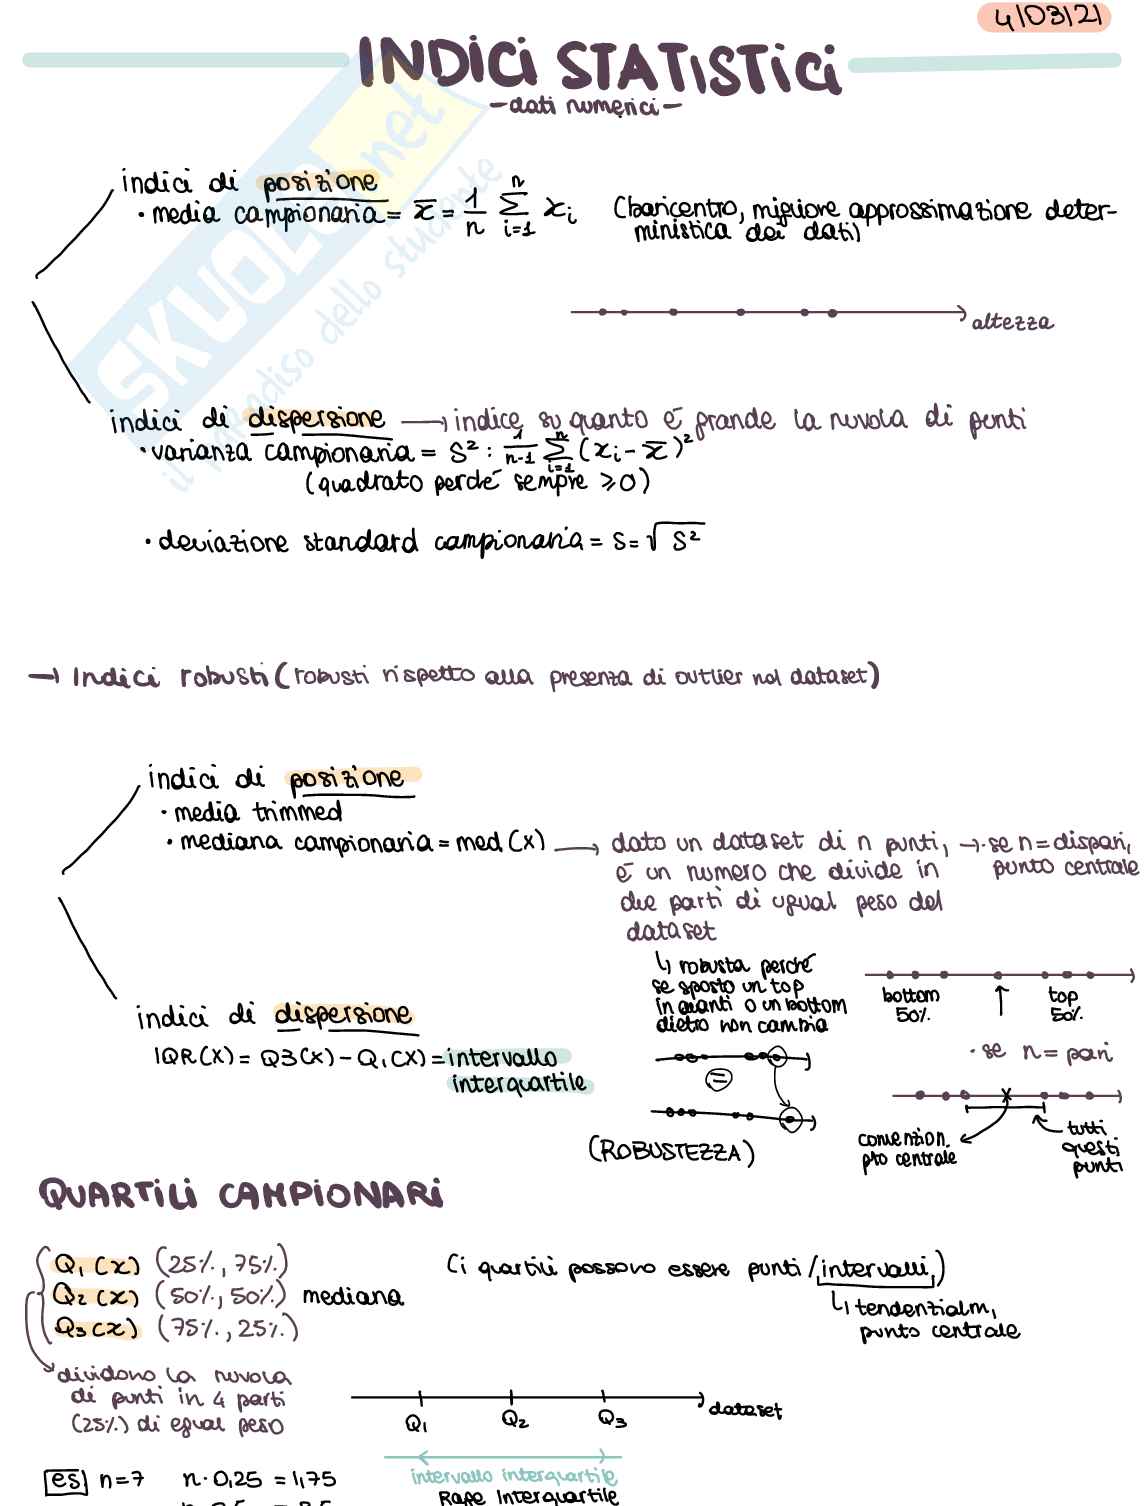 4/03/21
INDICI STATISTICI
- dati numerici -
indici di posizione
• media campionaria = x̄ = 1/n Σ i=1 n xi (baricentro, migliore approssimazione deter-
ministica dei dati)
altezza
indici di dispersione → indice su quanto è grande la nuvola di punti
• varianza campionaria = S² : 1/n-1 Σ i=1 n (xi - x̄)²
(quadrato perché sempre ≥0)
• deviazione standard campionaria = S = √S²
→ Indici robusti (robusti rispetto alla presenza di outlier nel dataset)
indici di posizione
• media trimmed
• mediana campionaria = med (x) → dato un dataset di n punti, → • se n = dispari,
è un numero che divide in
punto centrale
due parti di ugual peso del
dataset
↳ robusta perché
se sposto un top
in avanti o un bottom
dietro non cambia
bottom
50%
top
50%
• se n = pari
=
(ROBUSTEZZA)
convenzion.
pto centrale
tutti
questi
punti
indici di dispersione
IQR(x) = Q3(x) - Q1(x) = intervallo
interquartile
QUARTILI CAMPIONARI
Q1 (x) (25%, 75%)
Q2 (x) (50%, 50%) mediana
Q3 (x) (75%, 25%)
(i quartili possono essere punti / intervalli)
↳ tendenzialm,
punto centrale
dividono la nuvola
di punti in 4 parti
(25%) di egual peso
Q1 Q2 Q3 dataset
intervallo interquartile
Interquartile
es n=7 n·0,25 = 1,75
SKUOLA.net
il paradiso dello studente